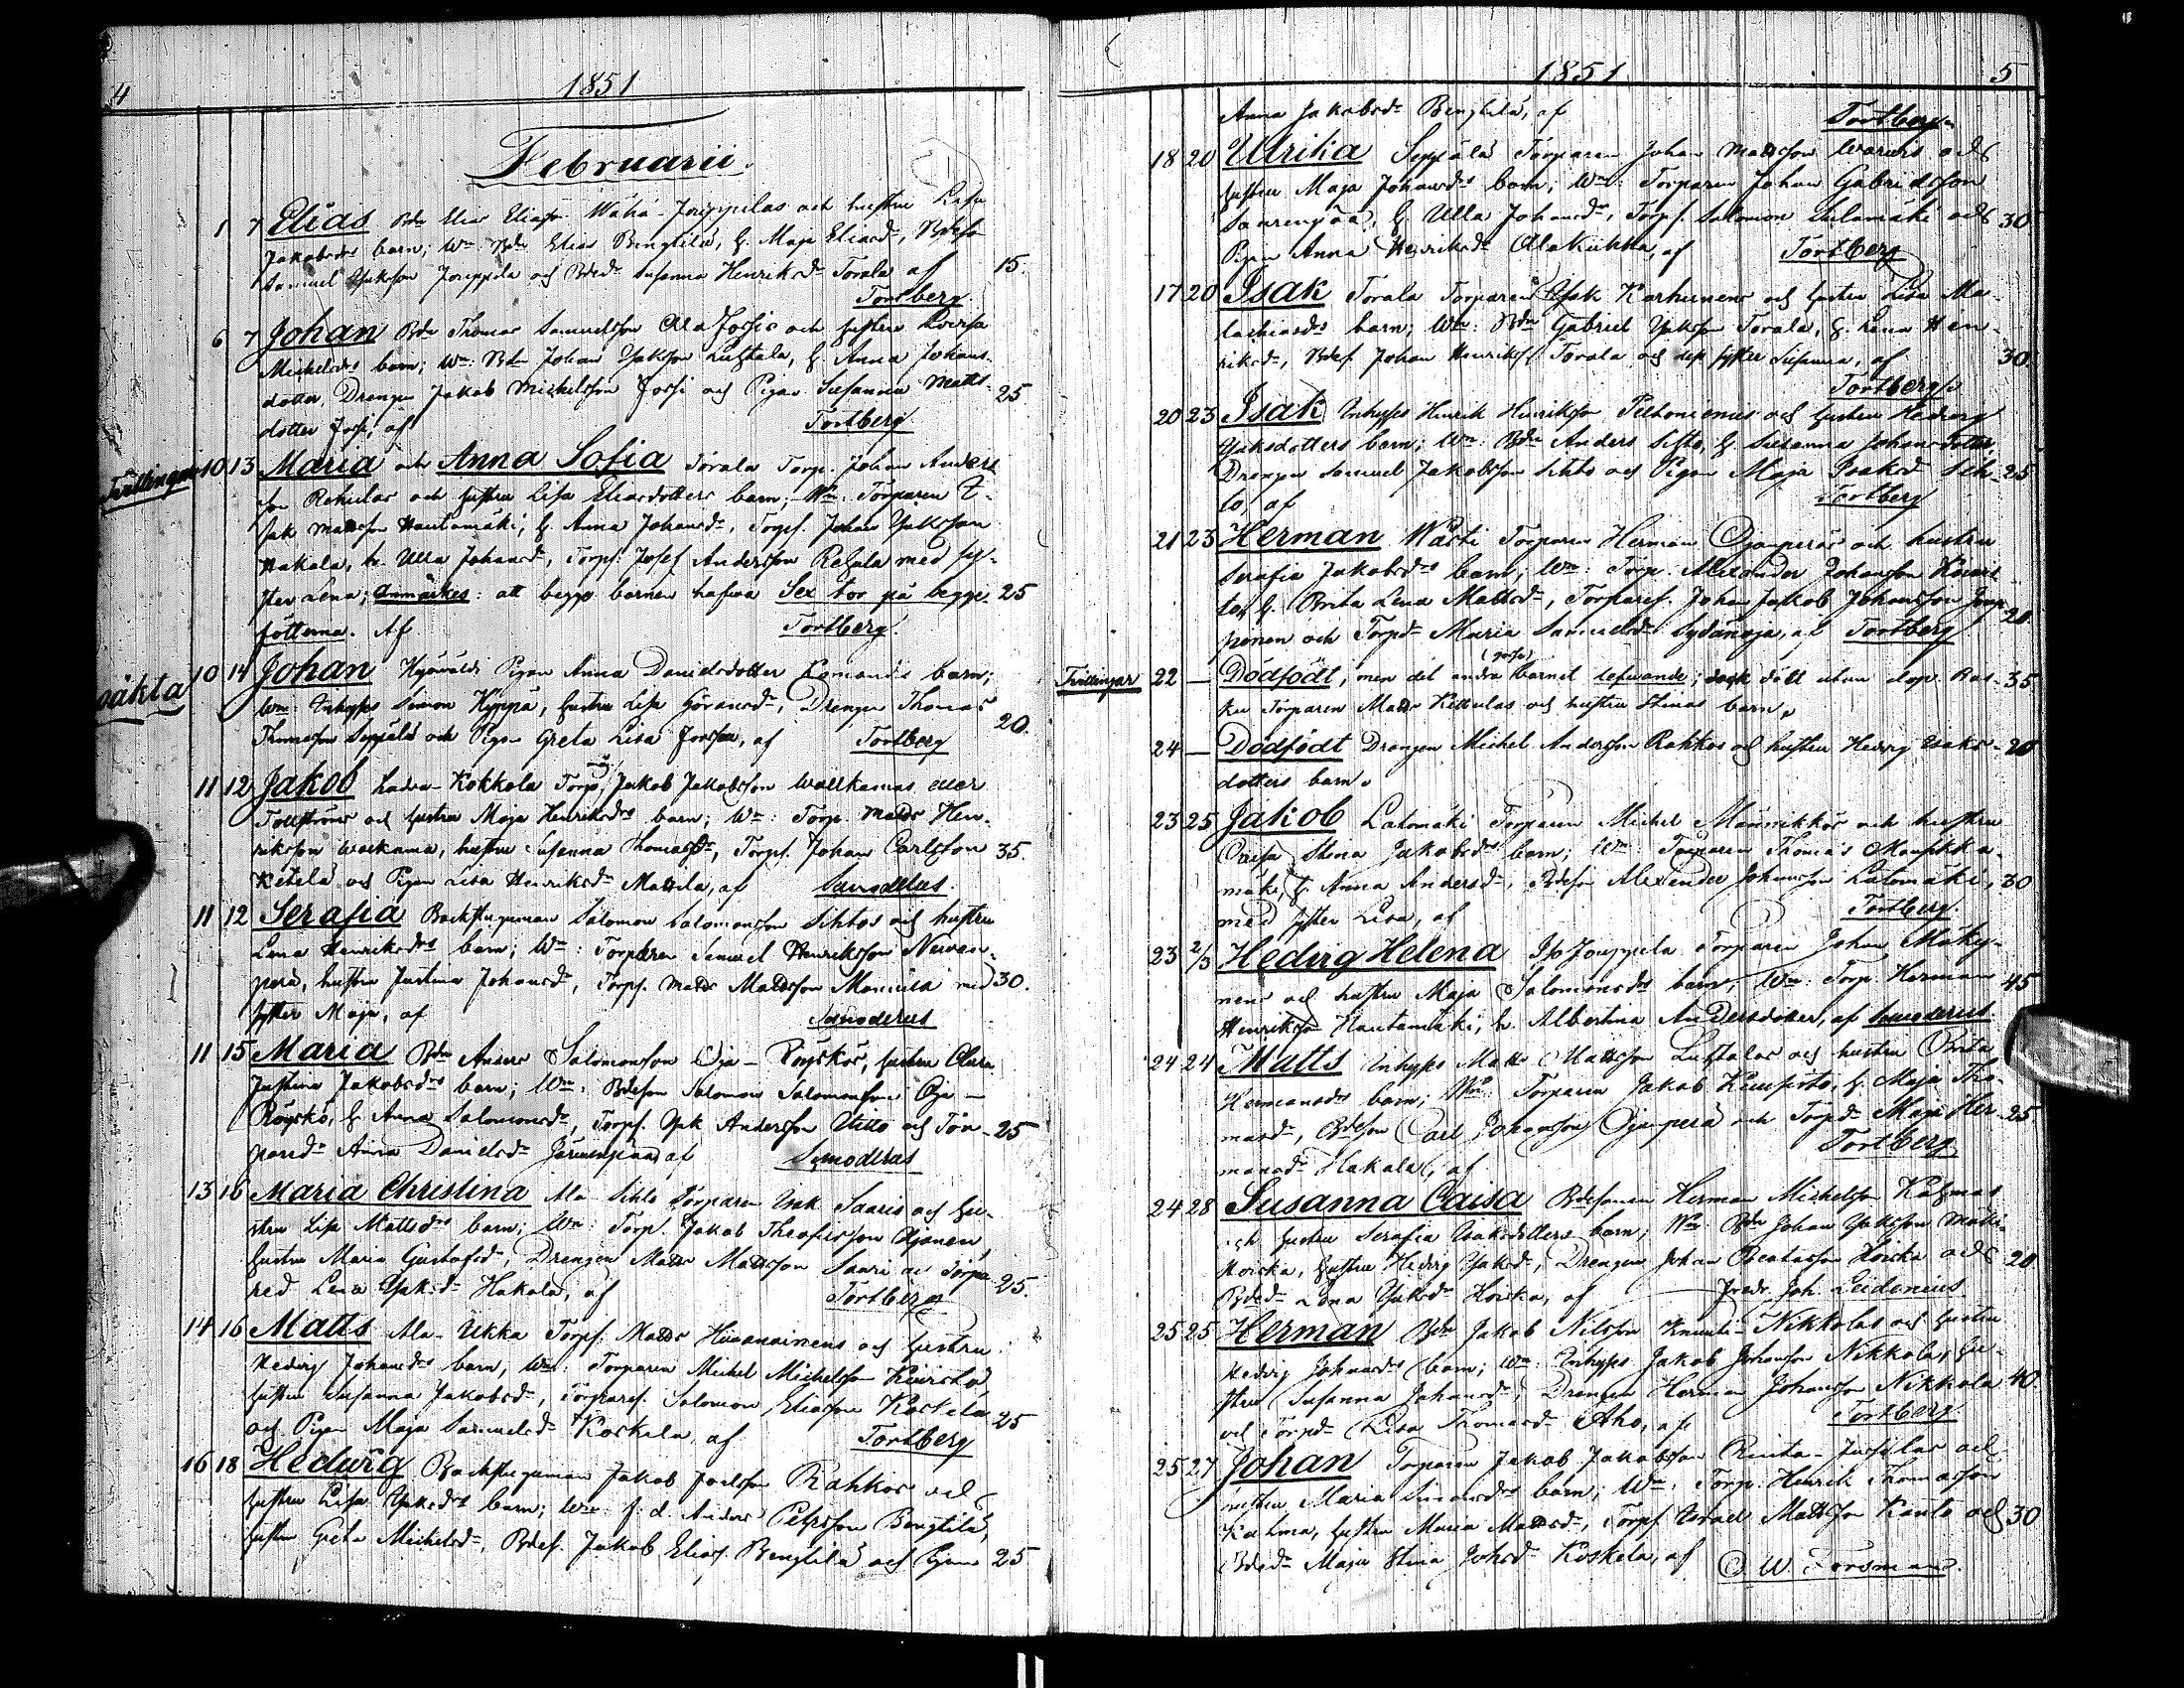 4
1851
Februarii
1 7 Elias Bdn Elias Eliasson Wähä-Jouppilas och hustru Lisa
Jakobsdrs barn; Wn: Bdn Elias Bengtilä, h. Maja Eliasdr, Bdeson
Samuel Isaksson Jouppila och Bdedr Susanna Henriksdr Torala af 15.
Tortberg.
6 7 Johan Bdn Thomas Samuelsson Ala Jossis och hustru Lovisa
Michelsdrs barn; Wn: Bdn Johan Isaksson Luhtala, h. Anna Johans-
dotter, Drengen Jakob Michelsson Jossi och Pigan Susanna Matts- 25
dotter Jossi, af Tortberg
Tvillingar 10 13 Maria och Anna Sofia Torala Torp. Johan Anders-
son Rehulas och hustru Lisa Eliasdotters barn; Wn: Torparen I-
sak Mattsson Hautamäki, h. Anna Johansdr, Torps. Johan Isaksson
Hakala, h. Ulla Johansdr, Torps. Josef Andersson Rehula med sy-
ster Lena; Anmärkes: att begge barnen hafwa Sex tår på begge 25
fötterna. Af Tortberg.
oäkta 10 14 Johan Hyövälds Pigan Anna Danielsdotter Komandis barn;
Wn: Inhyses Simon Hyppä, hustru Lisa Göransdr, Drengen Thomas
Thomasson Seppälä och Pigan Greta Lisa, af Tortberg 20.
11 12 Jakob Ladva-Kokkola Torp. Jakob Jakobsson Wallkamas eller
och hustru Maja Henriksdrs barn; Wn: Torp. Matts Hen-
riksson Walkama, hustru Susanna Thomasdr, Torps. Johan Carlsson 35.
Ketelä och Pigan Lisa Henriksdr Mattila, af Sanodelius.
11 12 Serafia Backstuguman Salomon Salomonsson Sihtos och hustru
Lena Henriksdrs barn; Wn: Torparen Samuel Henriksson Nevan-
perä, hustru Justina Johansdr, Torps. Matts Mattsson med 30.
syster Maja, af
11 15 Maria Bdn Anders Salomonsson Oja-Röyskös, hustru Clara
Justina Jakobsdrs barn; Wn: Bdeson Salomon Salomonsson Oja-
Röyskö, h. Anna Salomonsdr, Torps. Isak Andersson och Tor- 25
paredr Anna Danielsdr af
13 16 Maria Christina Ala Sihto Torparen Isak Saaris och hu-
stru Lisa Mattsdrs barn; Wn: Torp. Jakob
hustru Maria Gustafsdr, Drengen Matts Mattsson Saari och Torpa-
redr Lena Isaksdr Hakala, af Tortberg 25.
14 16 Matts Ala-Ukka Torps. Matts och hustru
Hedvig Johansdrs barn, Wn: Torparen Michel Michelsson
hustru Susanna Jakobsdr, Torpares. Salomon Eliasson Koskela
och Pigan Maja Samuelsdr Koskela, af Tortberg 25
16 18 Hedwig Backstuguman Jakob Rahkos och
hustru Lisa Isaksdrs barn; Wn: f.d. Anders Petersson Bengtilä,
hustru Greta Michelsdr, Bdes. Jakob Eliass. Bengtilä och Pigan 25
1851 5
Anna Jakobsdr Bengtilä, af Tortberg
18 20 Ulrika Seppälä Torparen Johan Mattsson och
hustru Maja Johansdrs barn; Wn: Torparen Johan Gabrielsson
h. Ulla Johansdr, Torps. Salomon och 30
Pigan Anna Henriksdr Alakukka, af Tortberg
17 20 Isak Torala Torparen Isak Karhunens och hustru Lisa Ma-
barn; Wn: Bdn Gabriel Isaksson Torala, h. Lena Hen-
riksdr, Bdes. Johan Henriks. Torala och dess syster Susanna, af 30.
Tortberg
20 23 Isak Inhyses Henrik Henriksson Peltoniemis och hustru Hedvig
Isaksdotters barn; Wn: Bdn Anders Sihto, h. Susanna Johansdotter,
Drengen Samuel Jakobsson Sihto och Pigan Maja Isaksdr Sih- 25
to, af Tortberg
21 23 Herman Wästi Torparen Herman Ojanperäs och hustru
Serafia Jakobsdrs barn; Wn: Torp. Alexander Johansson
h. Brita Lena Mattsdr, Torpares. Johan Jakob Johansson 20
och Torpdr Maria Samuelsdr Sydänoja, af Tortberg
Tvillingar 22 — Dödfödt, men det andra barnet (gosse) lefwande; dock dött utan dop. Ras- 35
ku Torparen Matts Kettulas och hustru Stinas barn.
24 — Dödfödt Drengen Michel Andersson Rahkos och hustru Hedvig Isaks- 20
dotters barn.
23 25 Jakob Latomäki Torparen Michel Männikkös och hustru
Caisa Stina Jakobsdrs barn; Wn: Torparen Thomas Mansikka-
mäki, h. Anna Andersdr, Bdeson Alexander Johansson Latomäki, 30
med syster Lisa, af Tortberg.
23 2/3 Hedvig Helena Iso Jouppila Torparen Johan Mäky-
nens och hustru Maja Salomonsdrs barn; Wn: Torp. Herman 45
Henriksson Hautamäki, h. Albertina Andersdotter, af
24 24 Matts Inhyses Matts Mattsson Luhtalas och hustru Brita
Hermansdrs barn; Wn: Torparen Jakob h. Maja Tho-
masdr, Bdeson Carl Johansson Ojanperä och Torpdr Maja Her- 25
mansdr Hakala, af Tortberg
24 28 Susanna Caisa Bdesonen Herman Michelsson
och hustru Serafia Isaksdotters barn; Wn: Bdn Johan Isaksson Mäki-
Hoiska, hustru Hedvig Isaksdr, Drengen Johan Hoiska och 20
Bdedr Lena Isaksdr Hoiska, af Fredr. Joh. Leidenius.
25 25 Herman Bdn Jakob Nilsson Knuuti-Nikkolas och hustru
Hedvig Johansdrs barn; Wn: Inhyses Jakob Johansson Nikkola, hu-
stru Susanna Johansdr, Drengen Herman Johansson Nikkola 40.
och Torpdr Lisa Thomasdr Aho, af Tortberg
25 27 Johan Torparen Jakob Jakobsson Rinta-Jussilas och
hustru Maria Simonsdrs barn; Wn: Torp. Henrik Thomasson
Kalma, hustru Maria Mattsdr, Torps. Israel Mattsson Kanto och 30
Bdedr Maja Stina Johsdr Koskela, af C. W. Forsman.